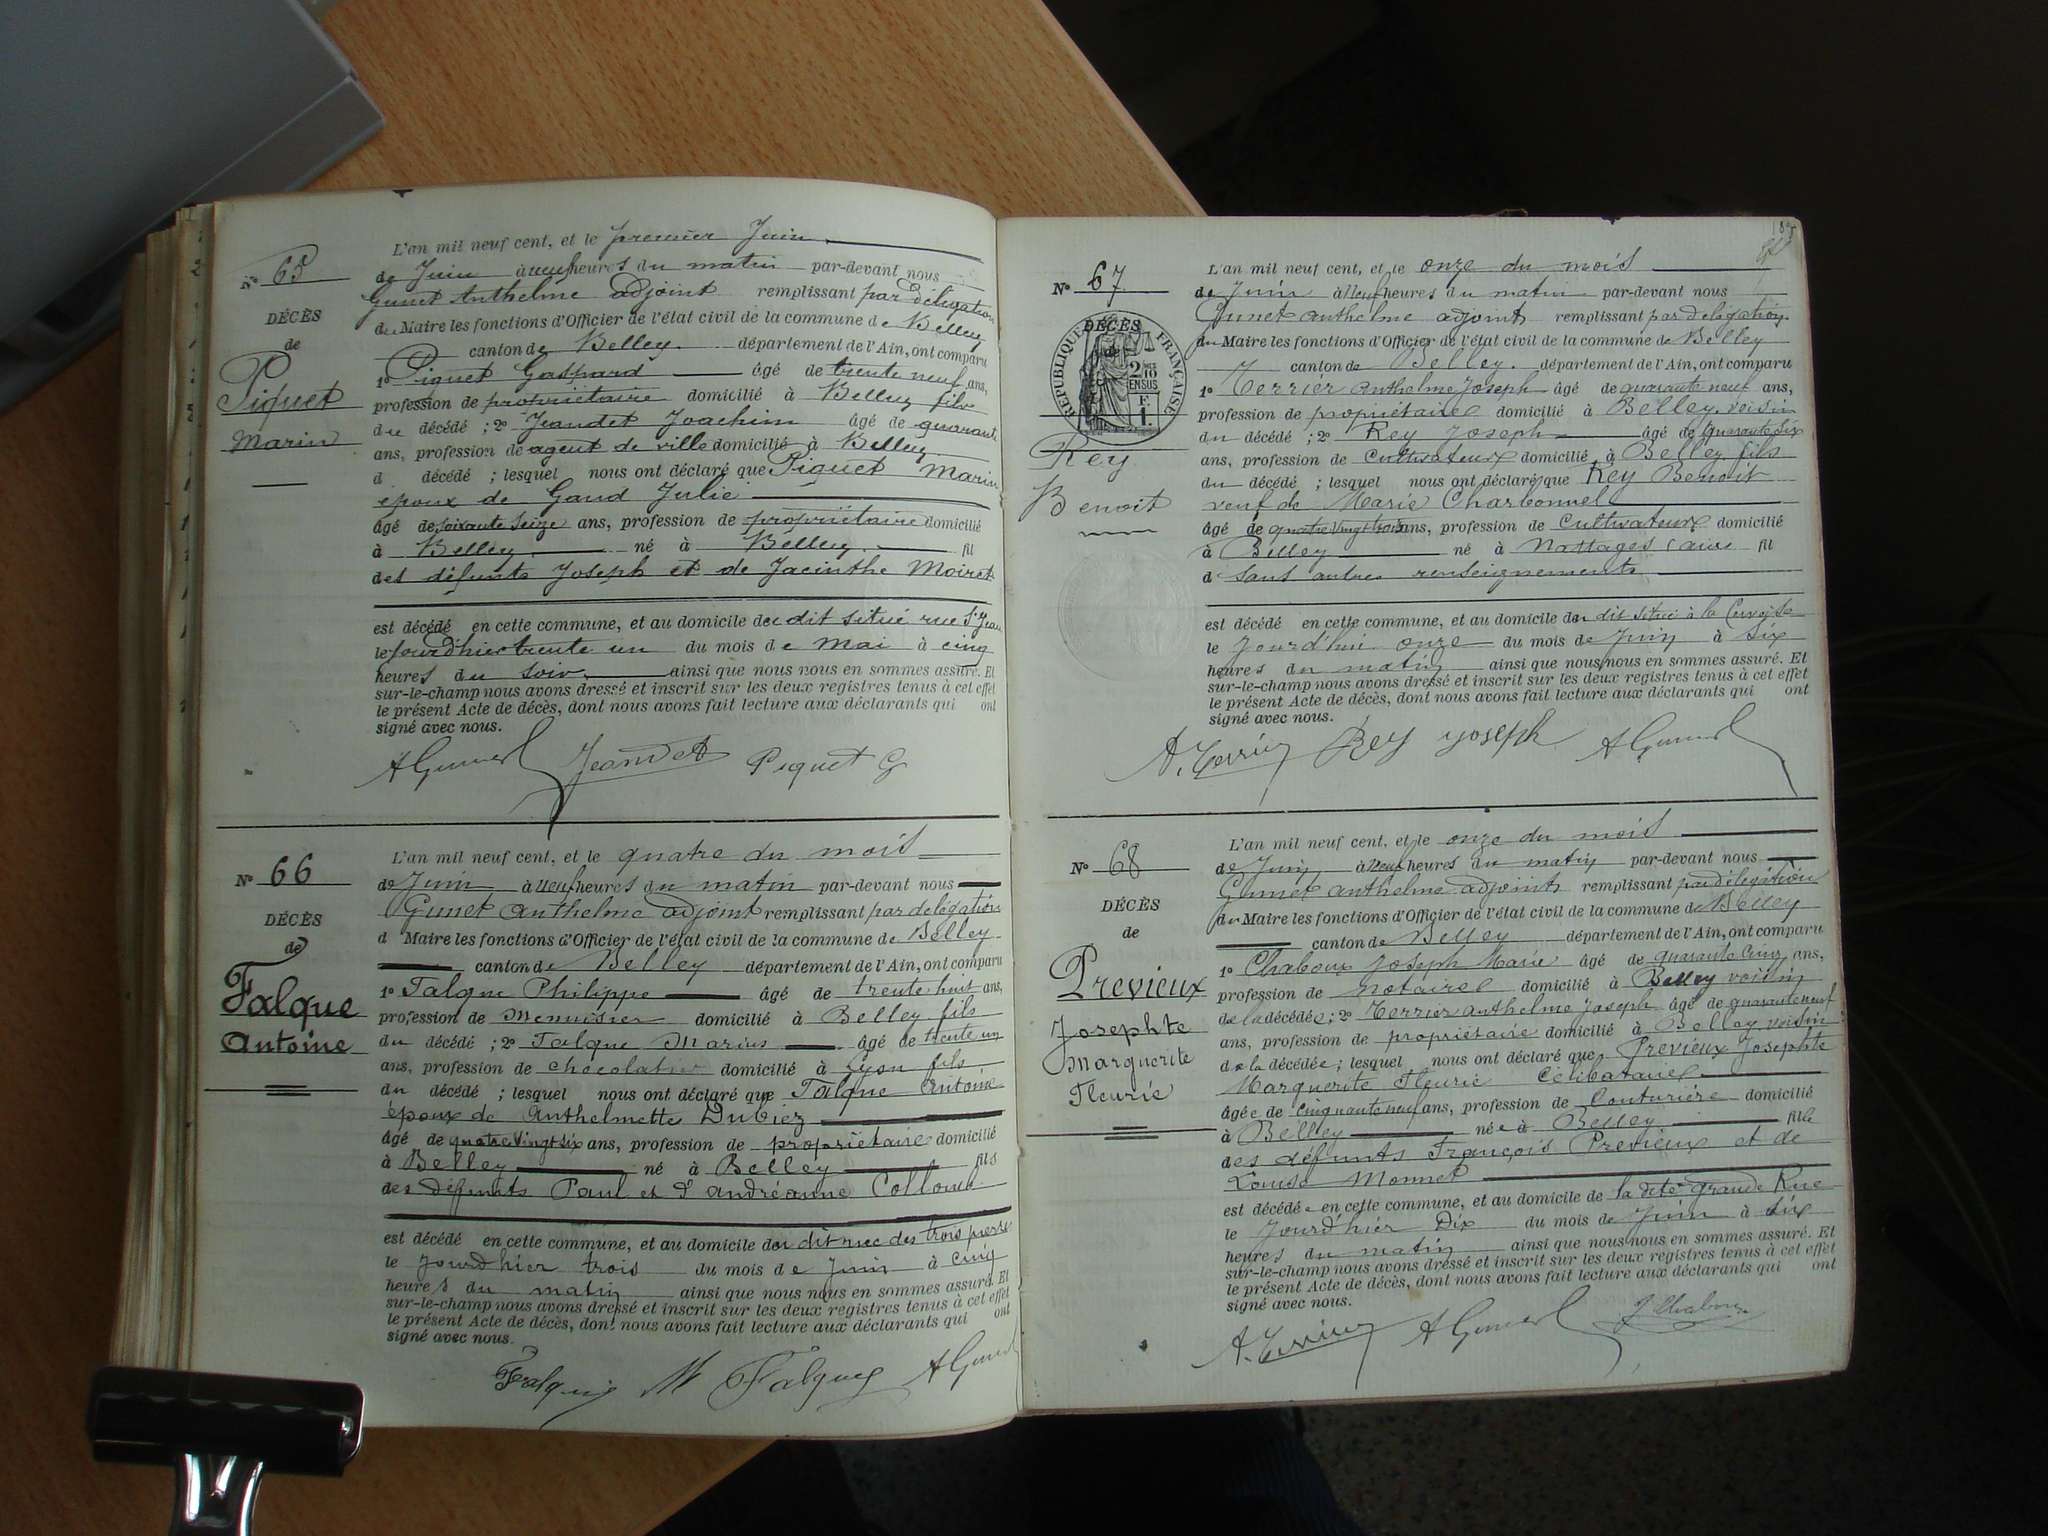 N° 65
DÉCÈS
de
Piquet
Marin
L'an mil neuf cent, et le premier Juin
de Juin à neuf heures du matin par-devant nous
Gunet Anthelme adjoint remplissant par délégation
du Maire les fonctions d'Officier de l'état civil de la commune de Belley
canton de Belley département de l'Ain, ont comparu
1° Piquet Gaspard âgé de trente neuf ans,
profession de propriétaire domicilié à Belley fils
du décédé ; 2° Jeandet Joachim âgé de quarante
ans, profession de agent de ville domicilié à Belley
d décédé ; lesquel nous ont déclaré que Piquet Marin
époux de Gaud Julie
âgé de soixante seize ans, profession de propriétaire domicilié
à Belley né à Belley fil
des défunts Joseph et de Jacinthe Moiret
est décédé en cette commune, et au domicile du dit situé rue St Jean
le jourd'hier trente un du mois de Mai à cinq
heures du soir ainsi que nous nous en sommes assuré. Et
sur-le-champ nous avons dressé et inscrit sur les deux registres tenus à cet effet
le présent Acte de décès, dont nous avons fait lecture aux déclarants qui ont
signé avec nous.
A Gunet Jeandet Piquet G
N° 66
DÉCÈS
de
Falque
Antoine
L'an mil neuf cent, et le quatre du mois
de Juin à neuf heures du matin par-devant nous
Gunet Anthelme adjoint remplissant par délégation
d Maire les fonctions d'Officier de l'état civil de la commune de Belley
canton de Belley département de l'Ain, ont comparu
1° Falque Philippe âgé de trente huit ans,
profession de Menuisier domicilié à Belley fils
du décédé ; 2° Falque Marius âgé de trente un
ans, profession de chocolatier domicilié à Lyon fils
du décédé ; lesquel nous ont déclaré que Falque Antoine
époux de Anthelmette Dubiez
âgé de quatre vingt six ans, profession de propriétaire domicilié
à Belley né à Belley fils
des défunts Paul et d'andréanne Collomb
est décédé en cette commune, et au domicile du dit rue des trois
le jourd'hier trois du mois de Juin à cinq
heures du matin ainsi que nous nous en sommes assuré. Et
sur-le-champ nous avons dressé et inscrit sur les deux registres tenus à cet effet
le présent Acte de décès, dont nous avons fait lecture aux déclarants qui ont
signé avec nous.
Falque M Falque A Gunet
N° 67
DÉCÈS
de
RÉPUBLIQUE FRANÇAISE
2/10 EN SUS
F. 1.
Rey
Benoit
L'an mil neuf cent, et le onze du mois
de Juin à neuf heures du matin par-devant nous
Gunet anthelme adjoint remplissant par délégation
du Maire les fonctions d'Officier de l'état civil de la commune de Belley
canton de Belley département de l'Ain, ont comparu
1° Terrier Anthelme Joseph âgé de quarante neuf ans,
profession de propriétaire domicilié à Belley voisin
du décédé ; 2° Rey Joseph âgé de quarante six
ans, profession de Cultivateur domicilié à Belley fils
du décédé ; lesquel nous ont déclaré que Rey Benoit
veuf de Marie Charbonnel
âgé de quatre vingt trois ans, profession de Cultivateur domicilié
à Belley né à Nattages (ain) fil
d sans autres renseignements
est décédé en cette commune, et au domicile du dit situé à la
le jourd'hui onze du mois de Juin à six
heures du matin ainsi que nous nous en sommes assuré. Et
sur-le-champ nous avons dressé et inscrit sur les deux registres tenus à cet effet
le présent Acte de décès, dont nous avons fait lecture aux déclarants qui ont
signé avec nous.
A. Terrier Rey Joseph A Gunet
N° 68
DÉCÈS
de
Previeux
Josephte
Marguerite
Fleurie
L'an mil neuf cent, et le onze du mois
de Juin à neuf heures du matin par-devant nous
Gunet anthelme adjoint remplissant par délégation
du Maire les fonctions d'Officier de l'état civil de la commune de Belley
canton de Belley département de l'Ain, ont comparu
1° Chaboux Joseph Marie âgé de quarante cinq ans,
profession de notaire domicilié à Belley voisin
de la décédée ; 2° Terrier anthelme Joseph âgé de quarante neuf
ans, profession de propriétaire domicilié à Belley voisin
de la décédée ; lesquel nous ont déclaré que Previeux Josephte
Marguerite Fleurie Célibataire
âgée de cinquante neuf ans, profession de Couturière domicilié
à Belley née à Belley fille
des défunts François Previeux et de
Louise Monnet
est décédée en cette commune, et au domicile de la dite grande Rue
le jourd'hier Dix du mois de Juin à six
heures du matin ainsi que nous nous en sommes assuré. Et
sur-le-champ nous avons dressé et inscrit sur les deux registres tenus à cet effet
le présent Acte de décès, dont nous avons fait lecture aux déclarants qui ont
signé avec nous.
A. Terrier A Gunet J Chaboux